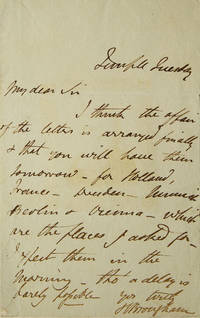 Temple Tuesday
My dear Sir
I think the affair
of the letters is arranged finally
& that you will have them
tomorrow – for Holland,
France – Dresden – Munich
Berlin & Vienna – which
are the places I asked for
I expect them in the
Morning – tho a delay is
barely possible yrs truly
H Brougham